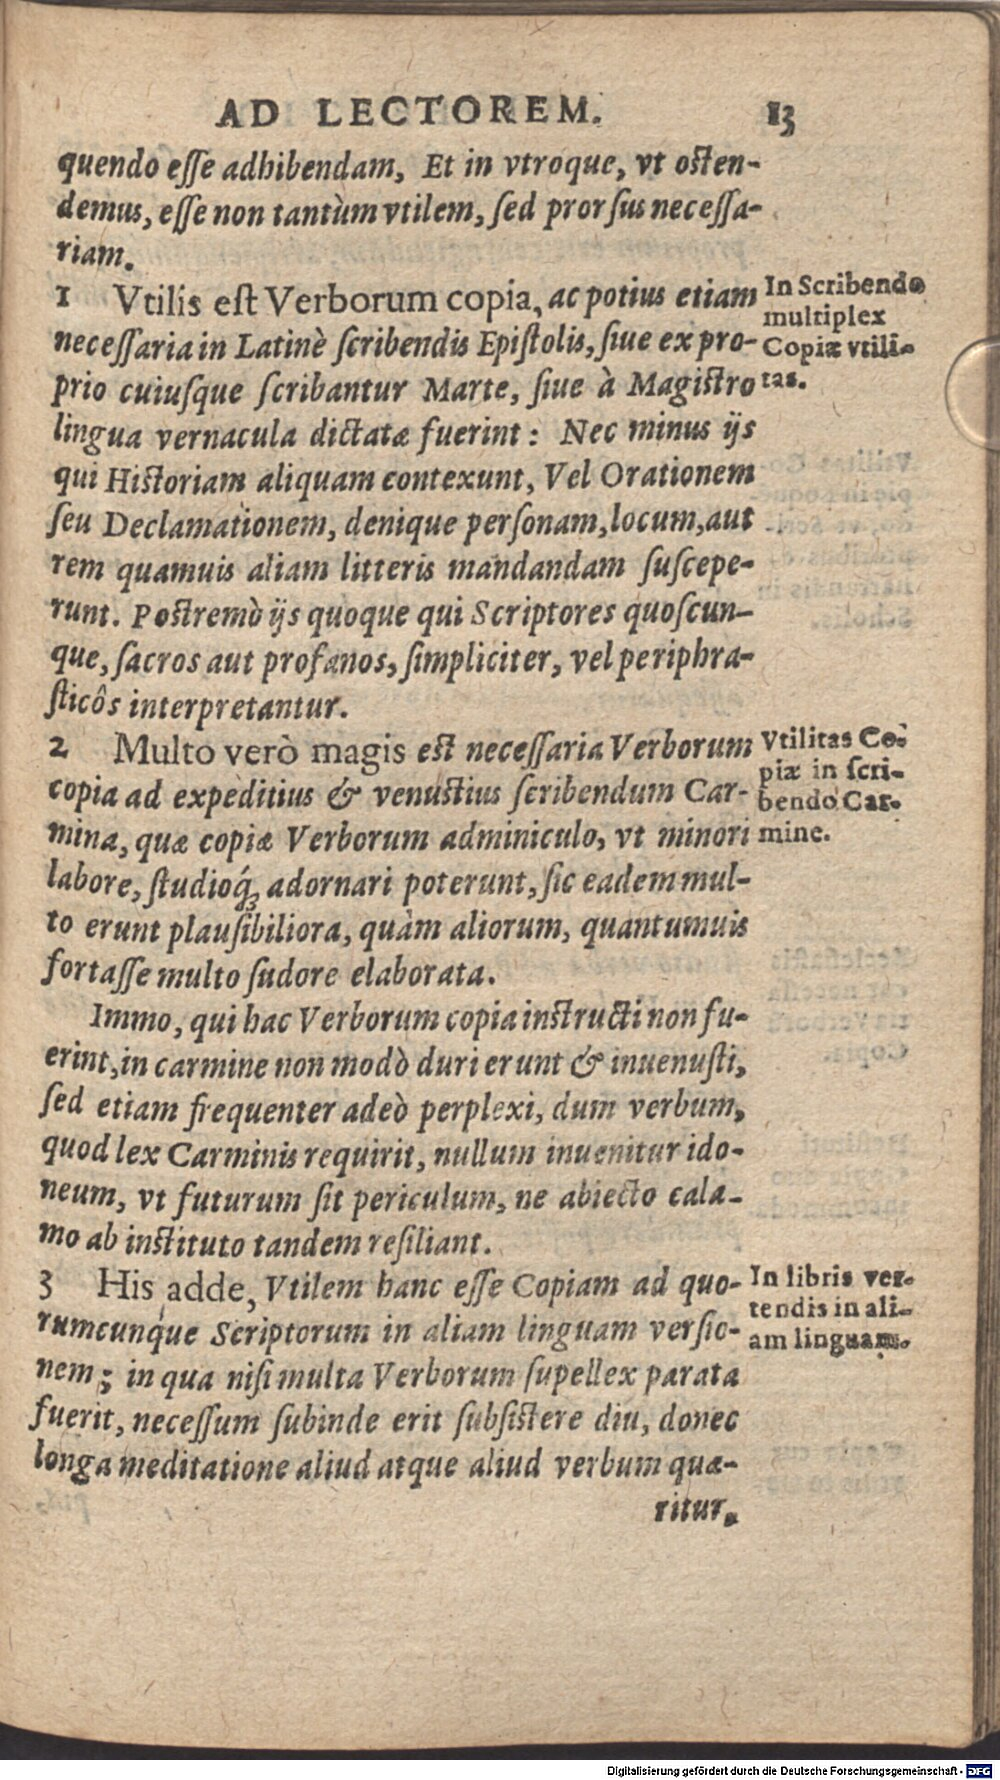 AD LECTOREM. 13
quendo eſſe adhibendam, Et in vtroque, vt oſten-
demus, eſſe non tantùm vtilem, ſed prorſus neceſſa-
riam.
1 Vtilis eſt Verborum copia, ac potius etiam
neceſſaria in Latinè ſcribendis Epiſtolis, ſiue ex pro-
prio cuiuſque ſcribantur Marte, ſiue à Magiſtro
lingua vernacula dictatæ fuerint: Nec minus ijs
qui Hiſtoriam aliquam contexunt, Vel Orationem
ſeu Declamationem, denique perſonam, locum, aut
rem quamuis aliam litteris mandandam ſuſcepe-
runt. Poſtremò ijs quoque qui Scriptores quoſcun-
que, ſacros aut profanos, ſimpliciter, vel periphra-
ſticôs interpretantur.
In Scribendo
multiplex
Copiæ vtili-
tas.
2 Multo verò magis eſt neceſſaria Verborum
copia ad expeditius & venuſtius ſcribendum Car-
mina, quæ copiæ Verborum adminiculo, vt minori
labore, ſtudioq́ꝫ adornari poterunt, ſic eadem mul-
to erunt plauſibiliora, quàm aliorum, quantumuis
fortaſſe multo ſudore elaborata.
Vtilitas Co-
piæ in ſcri-
bendo Car-
mine.
Immo, qui hac Verborum copia inſtructi non fu-
erint, in carmine non modò duri erunt & inuenuſti,
ſed etiam frequenter adeò perplexi, dum verbum,
quod lex Carminis requirit, nullum inuenitur ido-
neum, vt futurum ſit periculum, ne abiecto cala-
mo ab inſtituto tandem reſiliant.
3 His adde, Vtilem hanc eſſe Copiam ad quo-
rumcunque Scriptorum in aliam linguam verſio-
nem; in qua niſi multa Verborum ſupellex parata
fuerit, neceſſum ſubinde erit ſubſiſtere diu, donec
longa meditatione aliud atque aliud verbum quæ-
ritur.
In libris ver-
tendis in ali-
am linguam.
Digitalisierung gefördert durch die Deutsche Forschungsgemeinschaft - DFG